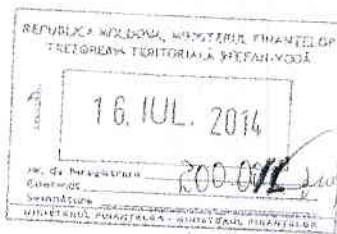 REPUBLICA MOLDOVA, MINISTERUL FINANȚELOR
TREZORERIA TERITORIALĂ ȘTEFAN-VODĂ
16. IUL. 2014
Nr. de înregistrare
Semnătura
MINISTERUL FINANȚELOR - MINISTERUL FINANȚELOR